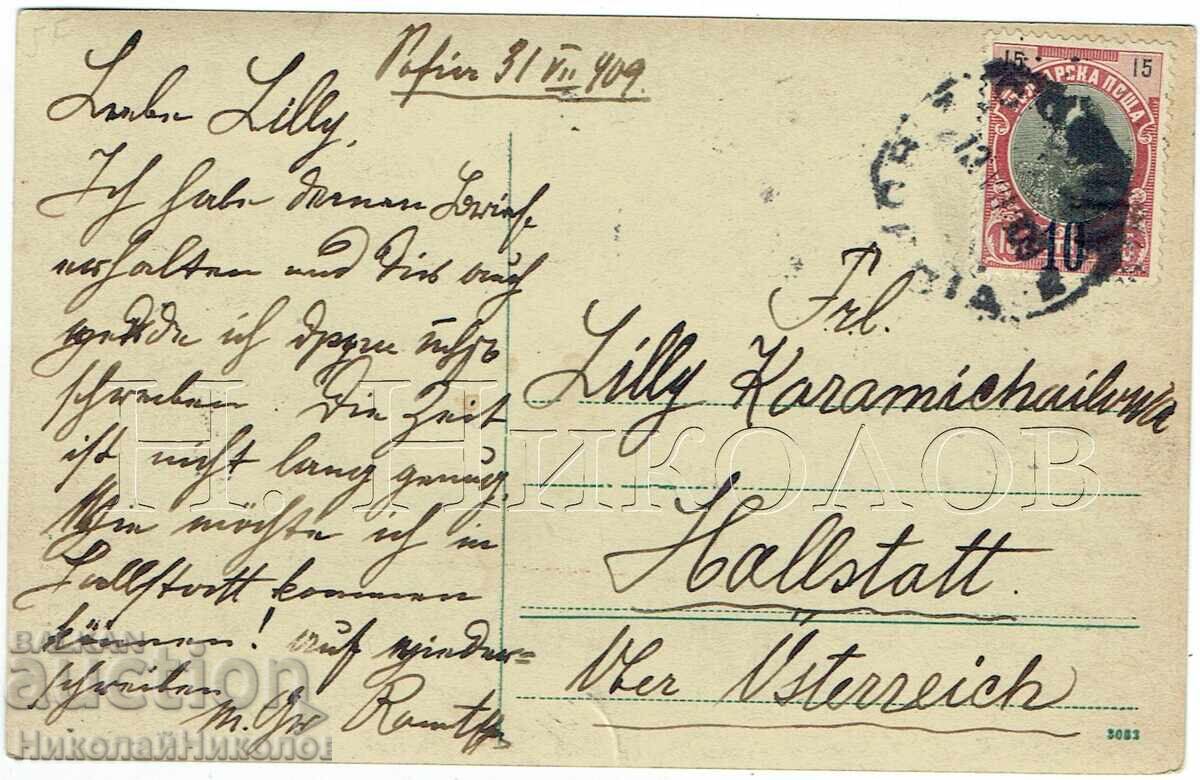 Sofia 31 VII 909.
Liebe Lilly,
Ich habe deinen Brief
erhalten und dies auch
ich
schreiben. Die Zeit
ist nicht lang genug,
Wie möchte ich in
Hallstatt kommen
können! auf wieder=
schreiben
m. Gr.
15 15
БЪЛГАРСКА ПОЩА
10
Frl.
Lilly Karamichailowa
Hallstatt.
Ober Österreich
3083
Н. Николов
BALKAN
auction
НиколайНиколов